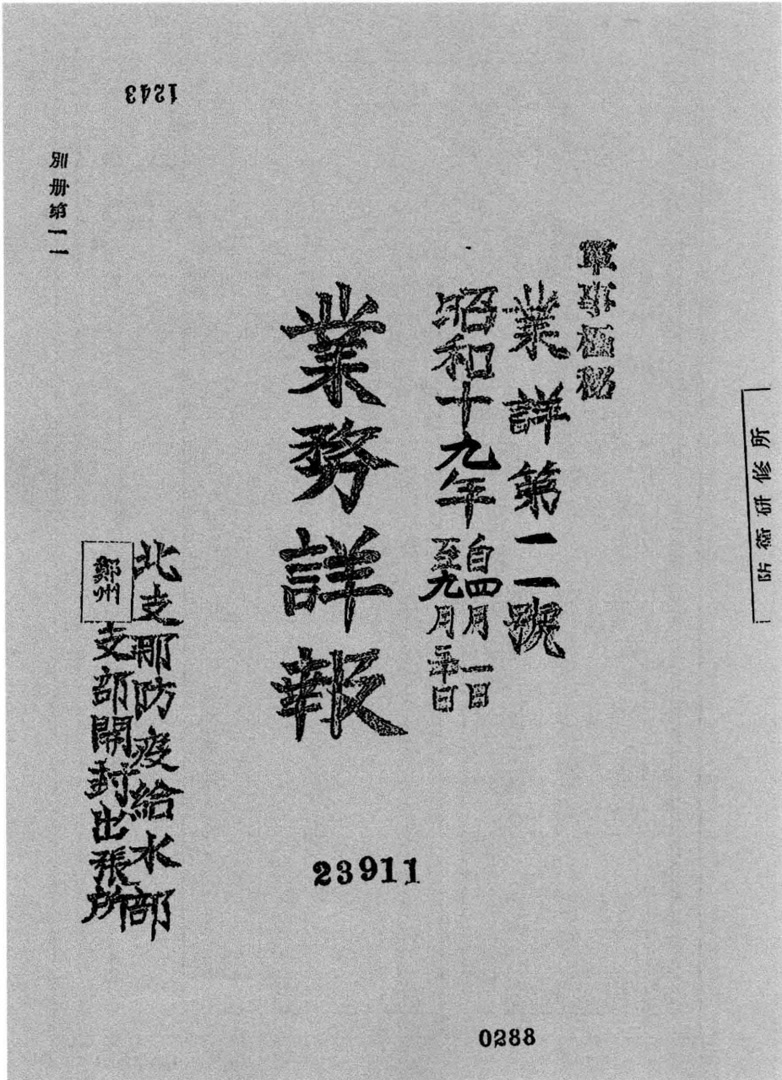 防衛研修所
軍事極秘
業詳第二號
昭和十九年
自四月一日
至九月三十日
業務詳報
北支那防疫給水部
鄭州支部開封出張所
別册第二
1243
23911
0288